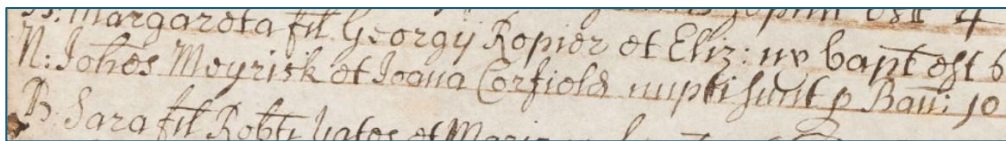 B: Margareta fil Georgij Ropier et Eliz: ux bapt est 6
N: Johes Meyrick et Joana Corfield nupti sunt p Ban: 10
B: Sara fil Robti Yates et Mariæ